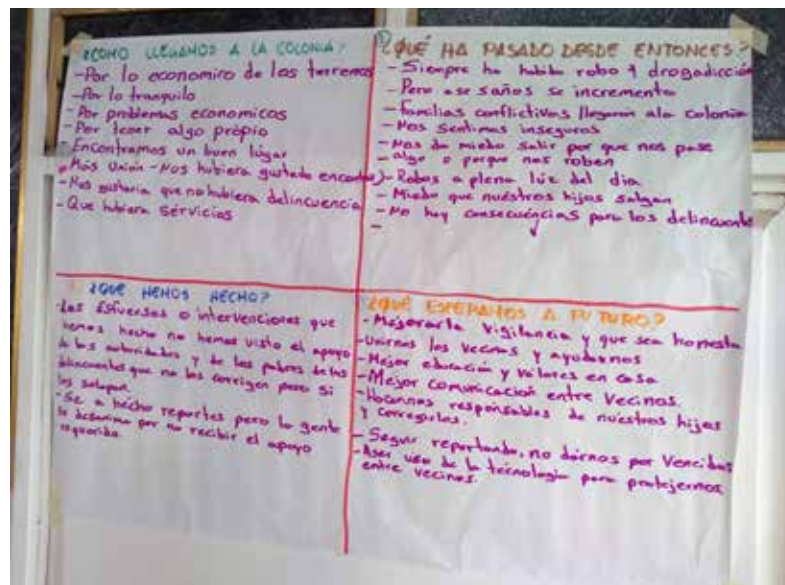 ¿COMO LLEGAMOS A LA COLONIA?
-Por lo economico de los terrenos
-Por lo tranquilo
-Por problemas economicos
-Por tener algo própio
-Encontramos un buen lugar
-Más Unión -Nos hubiera gustado encontrar)
-Nos gustaria que no hubiera delincuencia
-Que hubiera servicios
¿QUÉ HA PASADO DESDE ENTONCES?
-Siempre ha habido robo y drogadicción
-Pero ase 5 años se incremento
-Familias conflictivas llegaron ala colonia
-Nos sentimos inseguros
-Nos da miedo salir por que nos pase
algo o porque nos roben
-Robos a plena lúz del dia
-Miedo que nuéstros hijos salgan
-No hay consecuéncias para los delincuentes
-
¿QUE HEMOS HECHO?
-Los Esfuersos o intervenciones que
hemos hecho no hemos visto el apoyo
de las autoridades y de los padres de los
delincuentes que no los corrigen pero si
los solapan.
-Se a hécho reportes pero la gente
se desanima por no recibir el apoyo
requerido.
¿QUÉ ESPERAMOS A FUTURO?
-Mejorar la vigilancia y que sea honesta
-Unirnos los vecinos y ayudarnos
-Mejor educación y valores en casa
-Mejor comunicación entre Vecinos.
-Hacernos responsables de nuéstros hijos
y corregirlos.
-Seguir reportando, no darnos por Vencidos
-Aser uso de la técnologia para protejernos
entre vecinos.